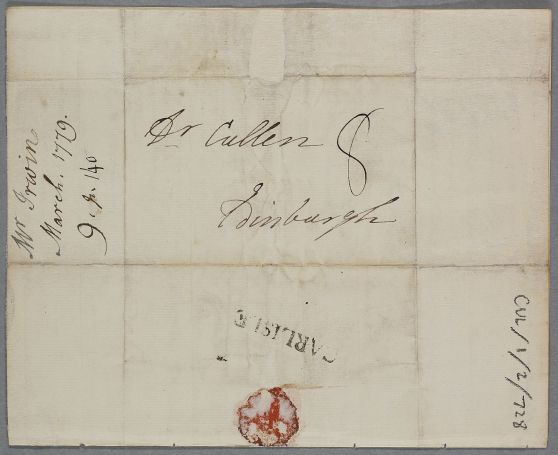 Dr Cullen 8
Edinburgh
Mr Irwin
March. 1779.
9. p. 140
CARLISLE
CUL/1/2/728